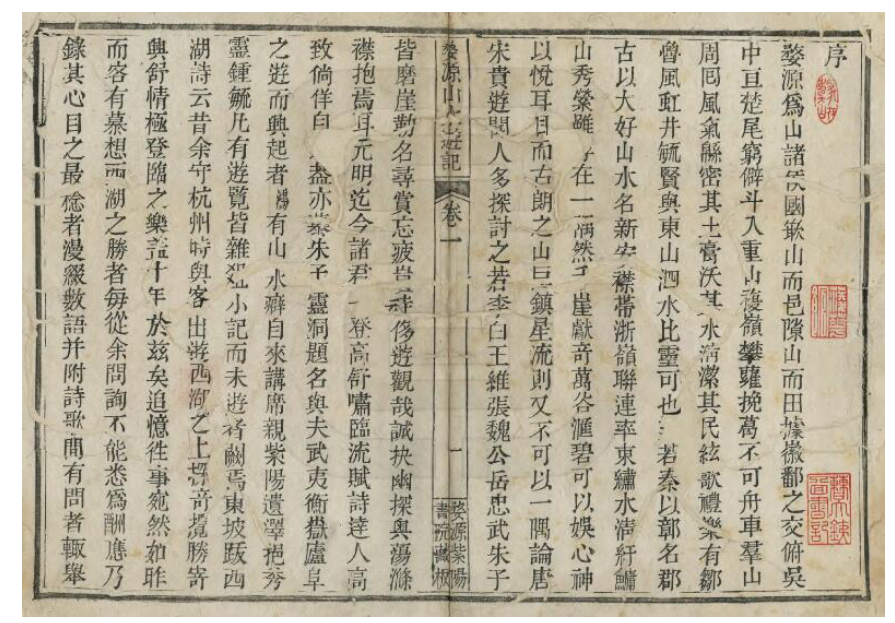 序
婺源爲山諸侯國嵌山而邑隙山而田據徽鄱之交俯吳
中亘楚尾窮僻斗入重山複嶺攀蘿挽葛不可舟車羣山
周囘風氣緜密其土膏沃其水清潔其民絃歌禮樂有鄒
魯風虹井毓賢與東山泗水比靈可也若秦以鄣名郡
古以大好山水名新安襟帶浙嶺聯連率東繡水淸紆鱅
山秀縈雖在一隅然千崖獻奇萬谷滙碧可以娛心神
以悅耳目而石朗之山巨鎮星流則又不可以一隅論唐
宋貴遊聞人多探討之若李白王維張魏公岳忠武朱子
婺源山水遊記 卷一 一 婺源紫陽書院藏板
皆磨崖勒名尋賞忘疲豈非侈遊觀哉誠抉幽探奧蕩滌
襟抱焉耳元明迄今諸君登高舒嘯臨流賦詩達人高
致倘佯自盡亦棻朱子靈洞題名與夫武夷衡嶽廬阜
之遊而興起者有山水癖自來講席親紫陽遺澤挹秀
靈鍾毓凡有遊覽皆雜小記而未遊者闕焉東坡跋西
湖詩云昔余守杭州時與客出遊西湖之上探奇攬勝寄
興舒情極登臨之樂盖十年於茲矣追憶徃事宛然如昨
而客有慕想西湖之勝者每從余問詢不能悉爲酬應乃
錄其心目之最稔者漫綴數語并附詩歌間有問者輒舉